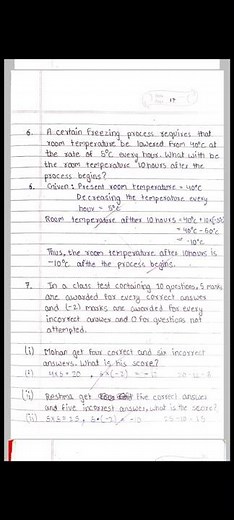 6. A certain freezing process requires that
room temperature be lowered from 40°C at
the rate of 5°C every hour. What with be
the room temperature 10 hours after the
process begins?
6. Given: Present room temperature = 40°C
Decreasing the temperature every
hour = 5°C
Room temperature after 10 hours = 40°C + 10×(-5°C)
= 40°C - 50°C
= -10°C
Thus, the room temperature after 10 hours is
-10°C after the process begins.
7. In a class test containing 10 questions, 5 marks
are awarded for every correct answer
and (-2) marks are awarded for every
incorrect answer and 0 for questions not
attempted.
(i) Mohan get four correct and six incorrect
answers. What is his score?
(i) 4×5 = 20, 6×(-2) = -12 20-12=8
(ii) Reshma get five correct answer
and five incorrect answer, what is the score?
(ii) 5×5=25, 5×(-2) = -10 25-10=15